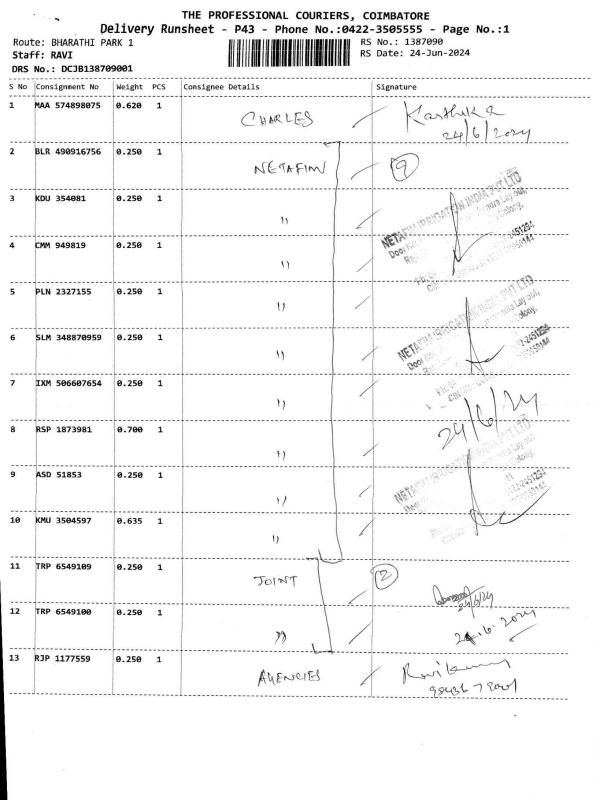 THE PROFESSIONAL COURIERS, COIMBATORE
Delivery Runsheet - P43 - Phone No.:0422-3505555 - Page No.:1
Route: BHARATHI PARK 1 RS No.: 1387090
Staff: RAVI RS Date: 24-Jun-2024
DRS No.: DCJB138709001
S No Consignment No Weight PCS Consignee Details Signature
1 MAA 574898075 0.620 1 CHARLES Karthika
24/6/2024
2 BLR 490916756 0.250 1 NETAFIM 9
3 KDU 354081 0.250 1 "
NETAFIM IRRIGATION INDIA PVT LTD
4 CMM 949819 0.250 1 "
5 PLN 2327155 0.250 1 "
NETAFIM IRRIGATION INDIA PVT LTD
6 SLM 348870959 0.250 1 "
7 IXM 506607654 0.250 1 "
24/6/24
8 RSP 1873981 0.700 1 "
9 ASD 51853 0.250 1 "
10 KMU 3504597 0.635 1 "
11 TRP 6549109 0.250 1 JOINT 2
24/6/24
12 TRP 6549100 0.250 1 "
24.6.2024
13 RJP 1177559 0.250 1 AGENCIES Ravikumar